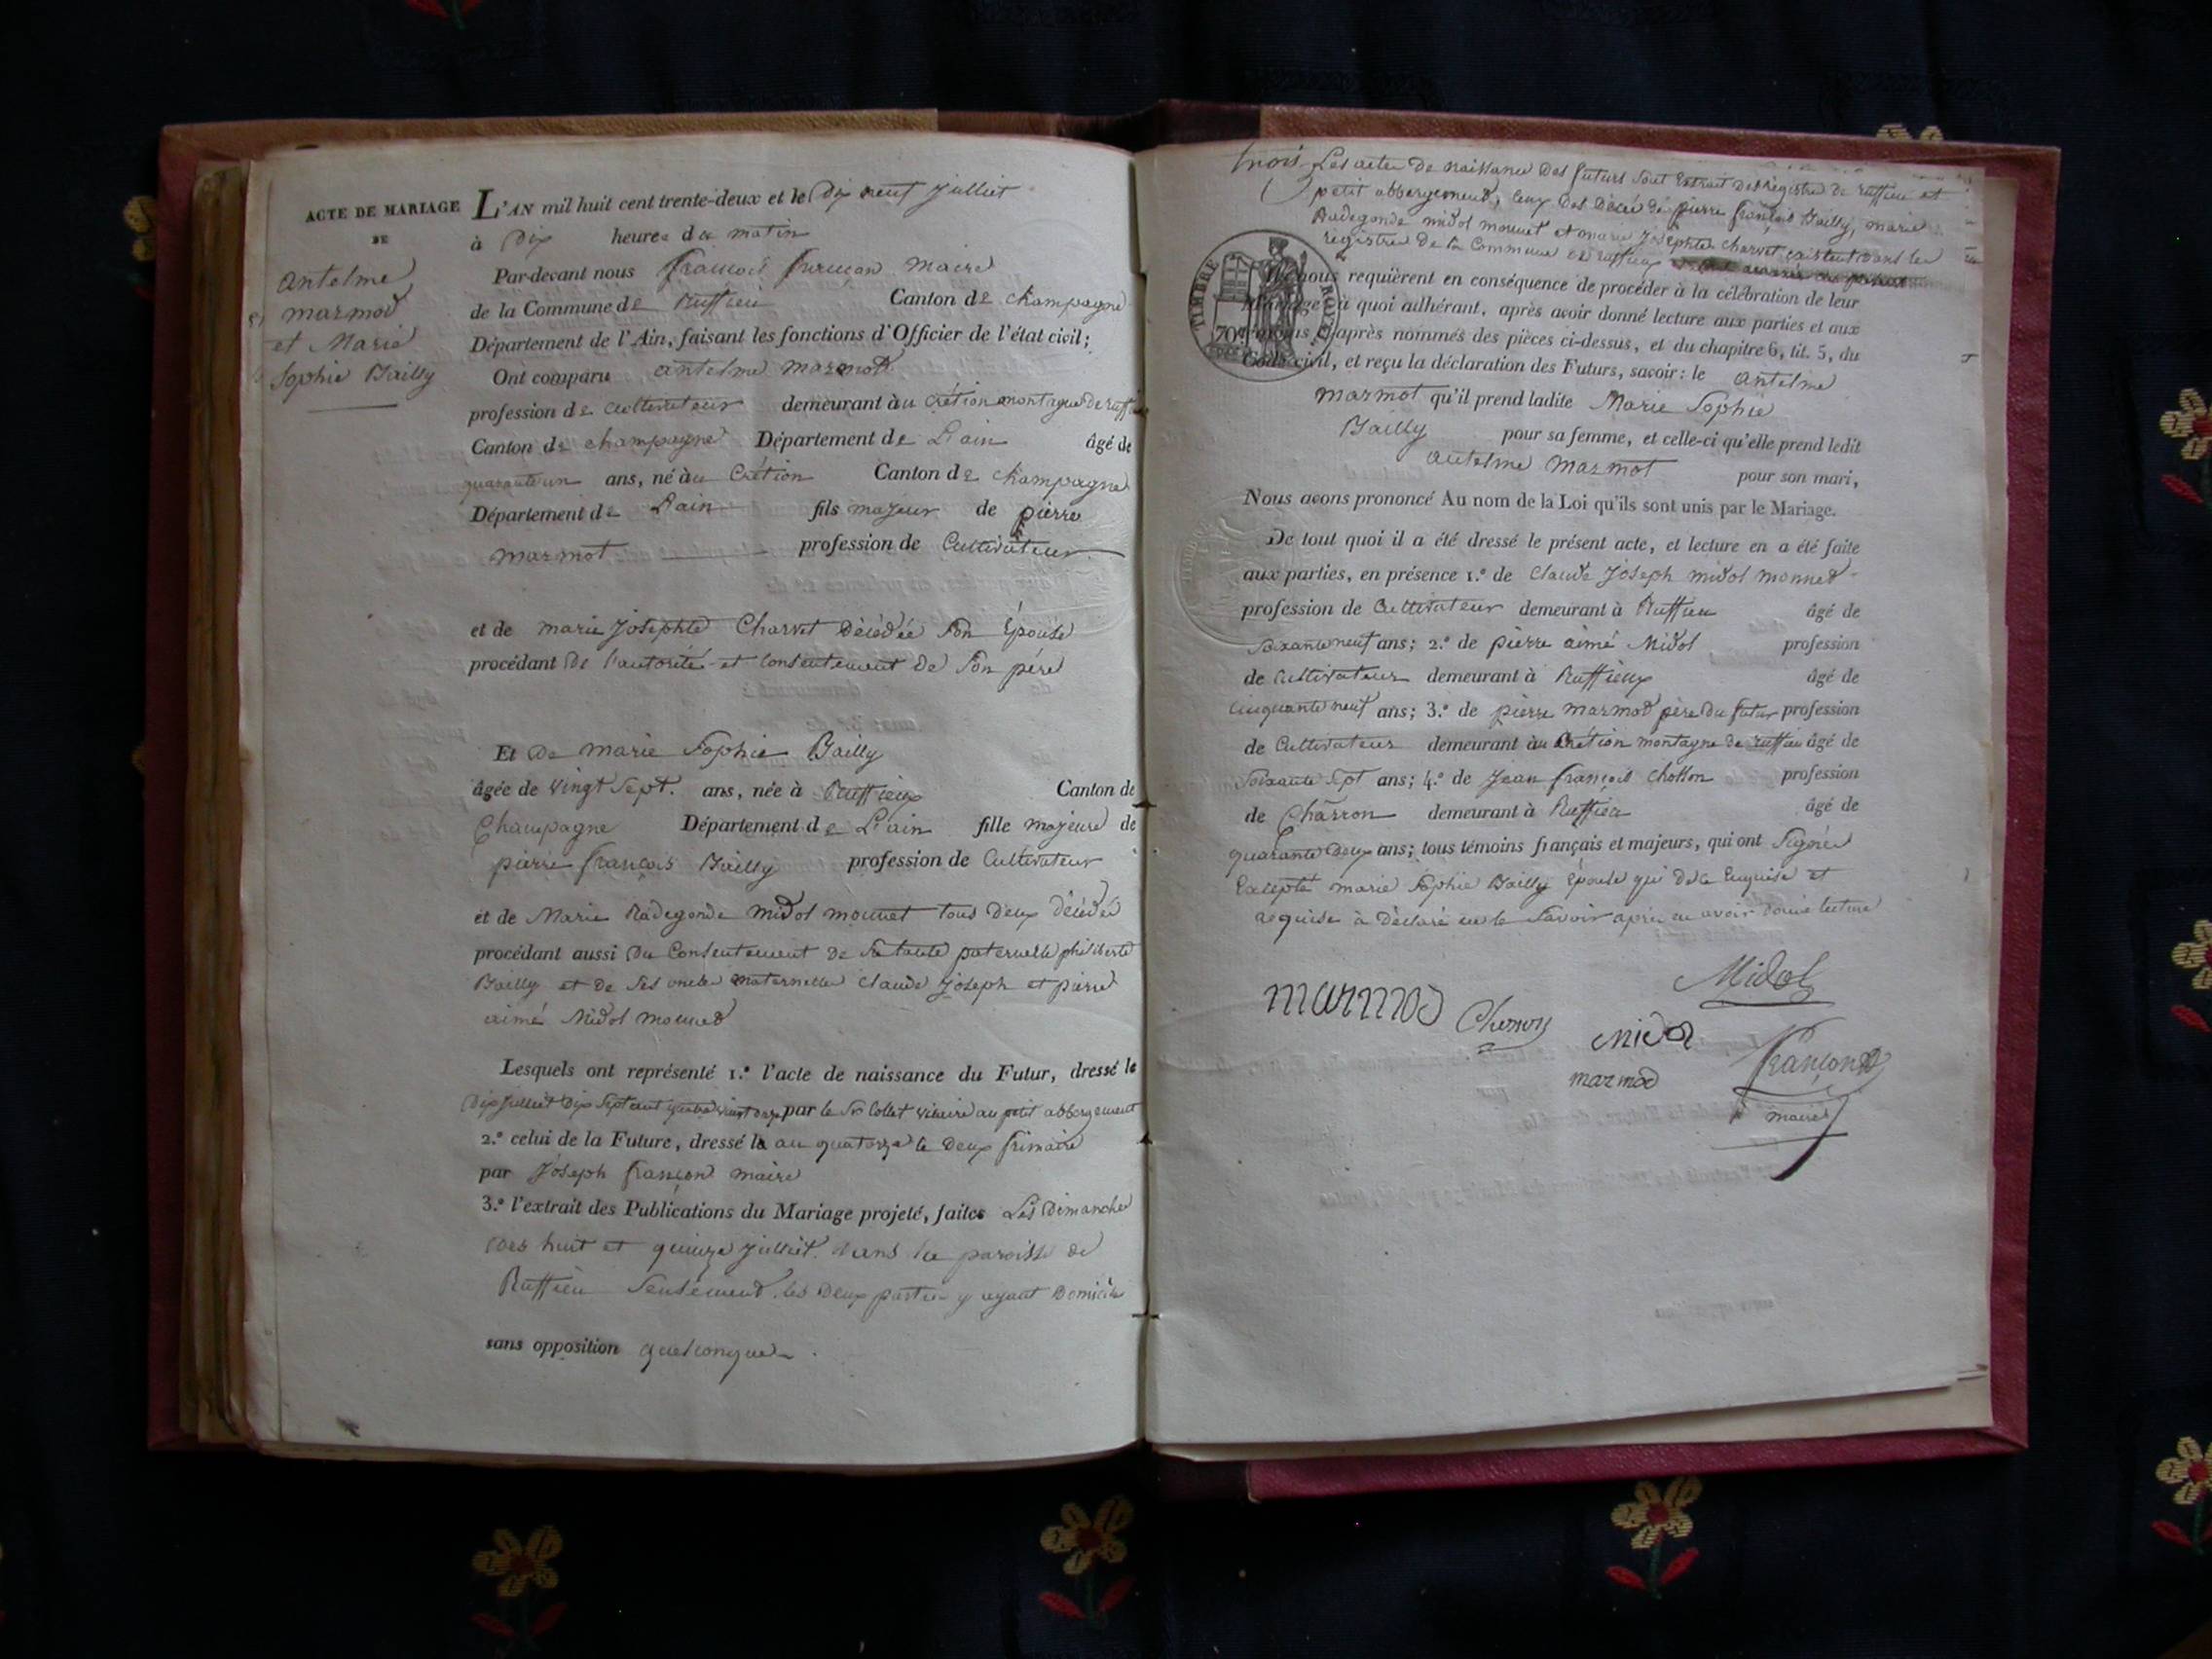 ACTE DE MARIAGE
DE
Antelme
marmod
et Marie
Sophie Bailly
L'AN mil huit cent trente-deux et le dix neuf Julliet
à Dix heures du matin
Par-devant nous françois françon maire
de la Commune de Ruffieu Canton de champagne
Département de l'Ain, faisant les fonctions d'Officier de l'état civil;
Ont comparu antelme marmod
profession de Cultivateur demeurant au Crétion montagne de ruffieu
Canton de champagne Département de L'ain âgé de
quarante un ans, né au Crétion Canton de champagne
Département de L'ain fils majeur de pierre
marmot profession de Cultivateur
et de marie Josephte Charvet Décédée son Épouse
procédant de l'autorité et Consentement de son pére
Et de marie Sophie Bailly
âgée de vingt sept. ans, née à Ruffieux Canton de
Champagne Département de L'ain fille majeure de
pierre françois Bailly profession de Cultivateur
et de Marie Radegonde midol monnet tous deux décédés
procédant aussi du Consentement de sa tante paternelle philiberte
Bailly et de ses oncles maternelles Claude Joseph et pierre
aimé Midol monned
Lesquels ont représenté 1.º l'acte de naissance du Futur, dressé le
Dix Julliet Dix Sept cent quatre vingt onze par le Sr Collet vicaire au petit abbergement
2.º celui de la Future, dressé le an quatorze le deux frimaire
par Joseph françon maire
3.º l'extrait des Publications du Mariage projeté, faites Les Dimanches
des huit et quinze Julliet dans la paroisse de
Ruffieu Seulement les deux parties y ayant Domicile
sans opposition quelconque
trois Les actes de naissance des futurs sont Extrait des Registres de ruffieu et
petit abbergement, ceux des décès de pierre françois Bailly, marie
Radegonde midol monnet et marie Josephte charvet existent dans les
registres de la Commune de ruffieux
TIMBRE ROYAL
70
nous requièrent en conséquence de procéder à la célébration de leur
Mariage à quoi adhérant, après avoir donné lecture aux parties et aux
témoins ci-après nommés des pièces ci-dessus, et du chapitre 6, tit. 5, du
Code civil, et reçu la déclaration des Futurs, savoir: le Antelme
marmot qu'il prend ladite Marie Sophie
Bailly pour sa femme, et celle-ci qu'elle prend ledit
antelme marmot pour son mari,
Nous avons prononcé Au nom de la Loi qu'ils sont unis par le Mariage.
De tout quoi il a été dressé le présent acte, et lecture en a été faite
aux parties, en présence 1.º de Claude Joseph midol monned
profession de Cultivateur demeurant à Ruffieu âgé de
Soixante neuf ans; 2.º de pierre aimé Midol profession
de Cultivateur demeurant à Ruffieux âgé de
Cinquante neuf ans; 3.º de pierre marmod père du futur profession
de Cultivateur demeurant au Crétion montagne de ruffieu âgé de
Soixante Sept ans; 4.º de Jean françois profession
de Charron demeurant à Ruffieu âgé de
quarante Deux ans; tous témoins français et majeurs, qui ont Signés
Excepté marie Sophie Bailly Epouse qui de ce Enquise et
requise à Déclaré ne le Savoir après en avoir donné lecture
Midol
marmod
midol
marmod
françon
maire